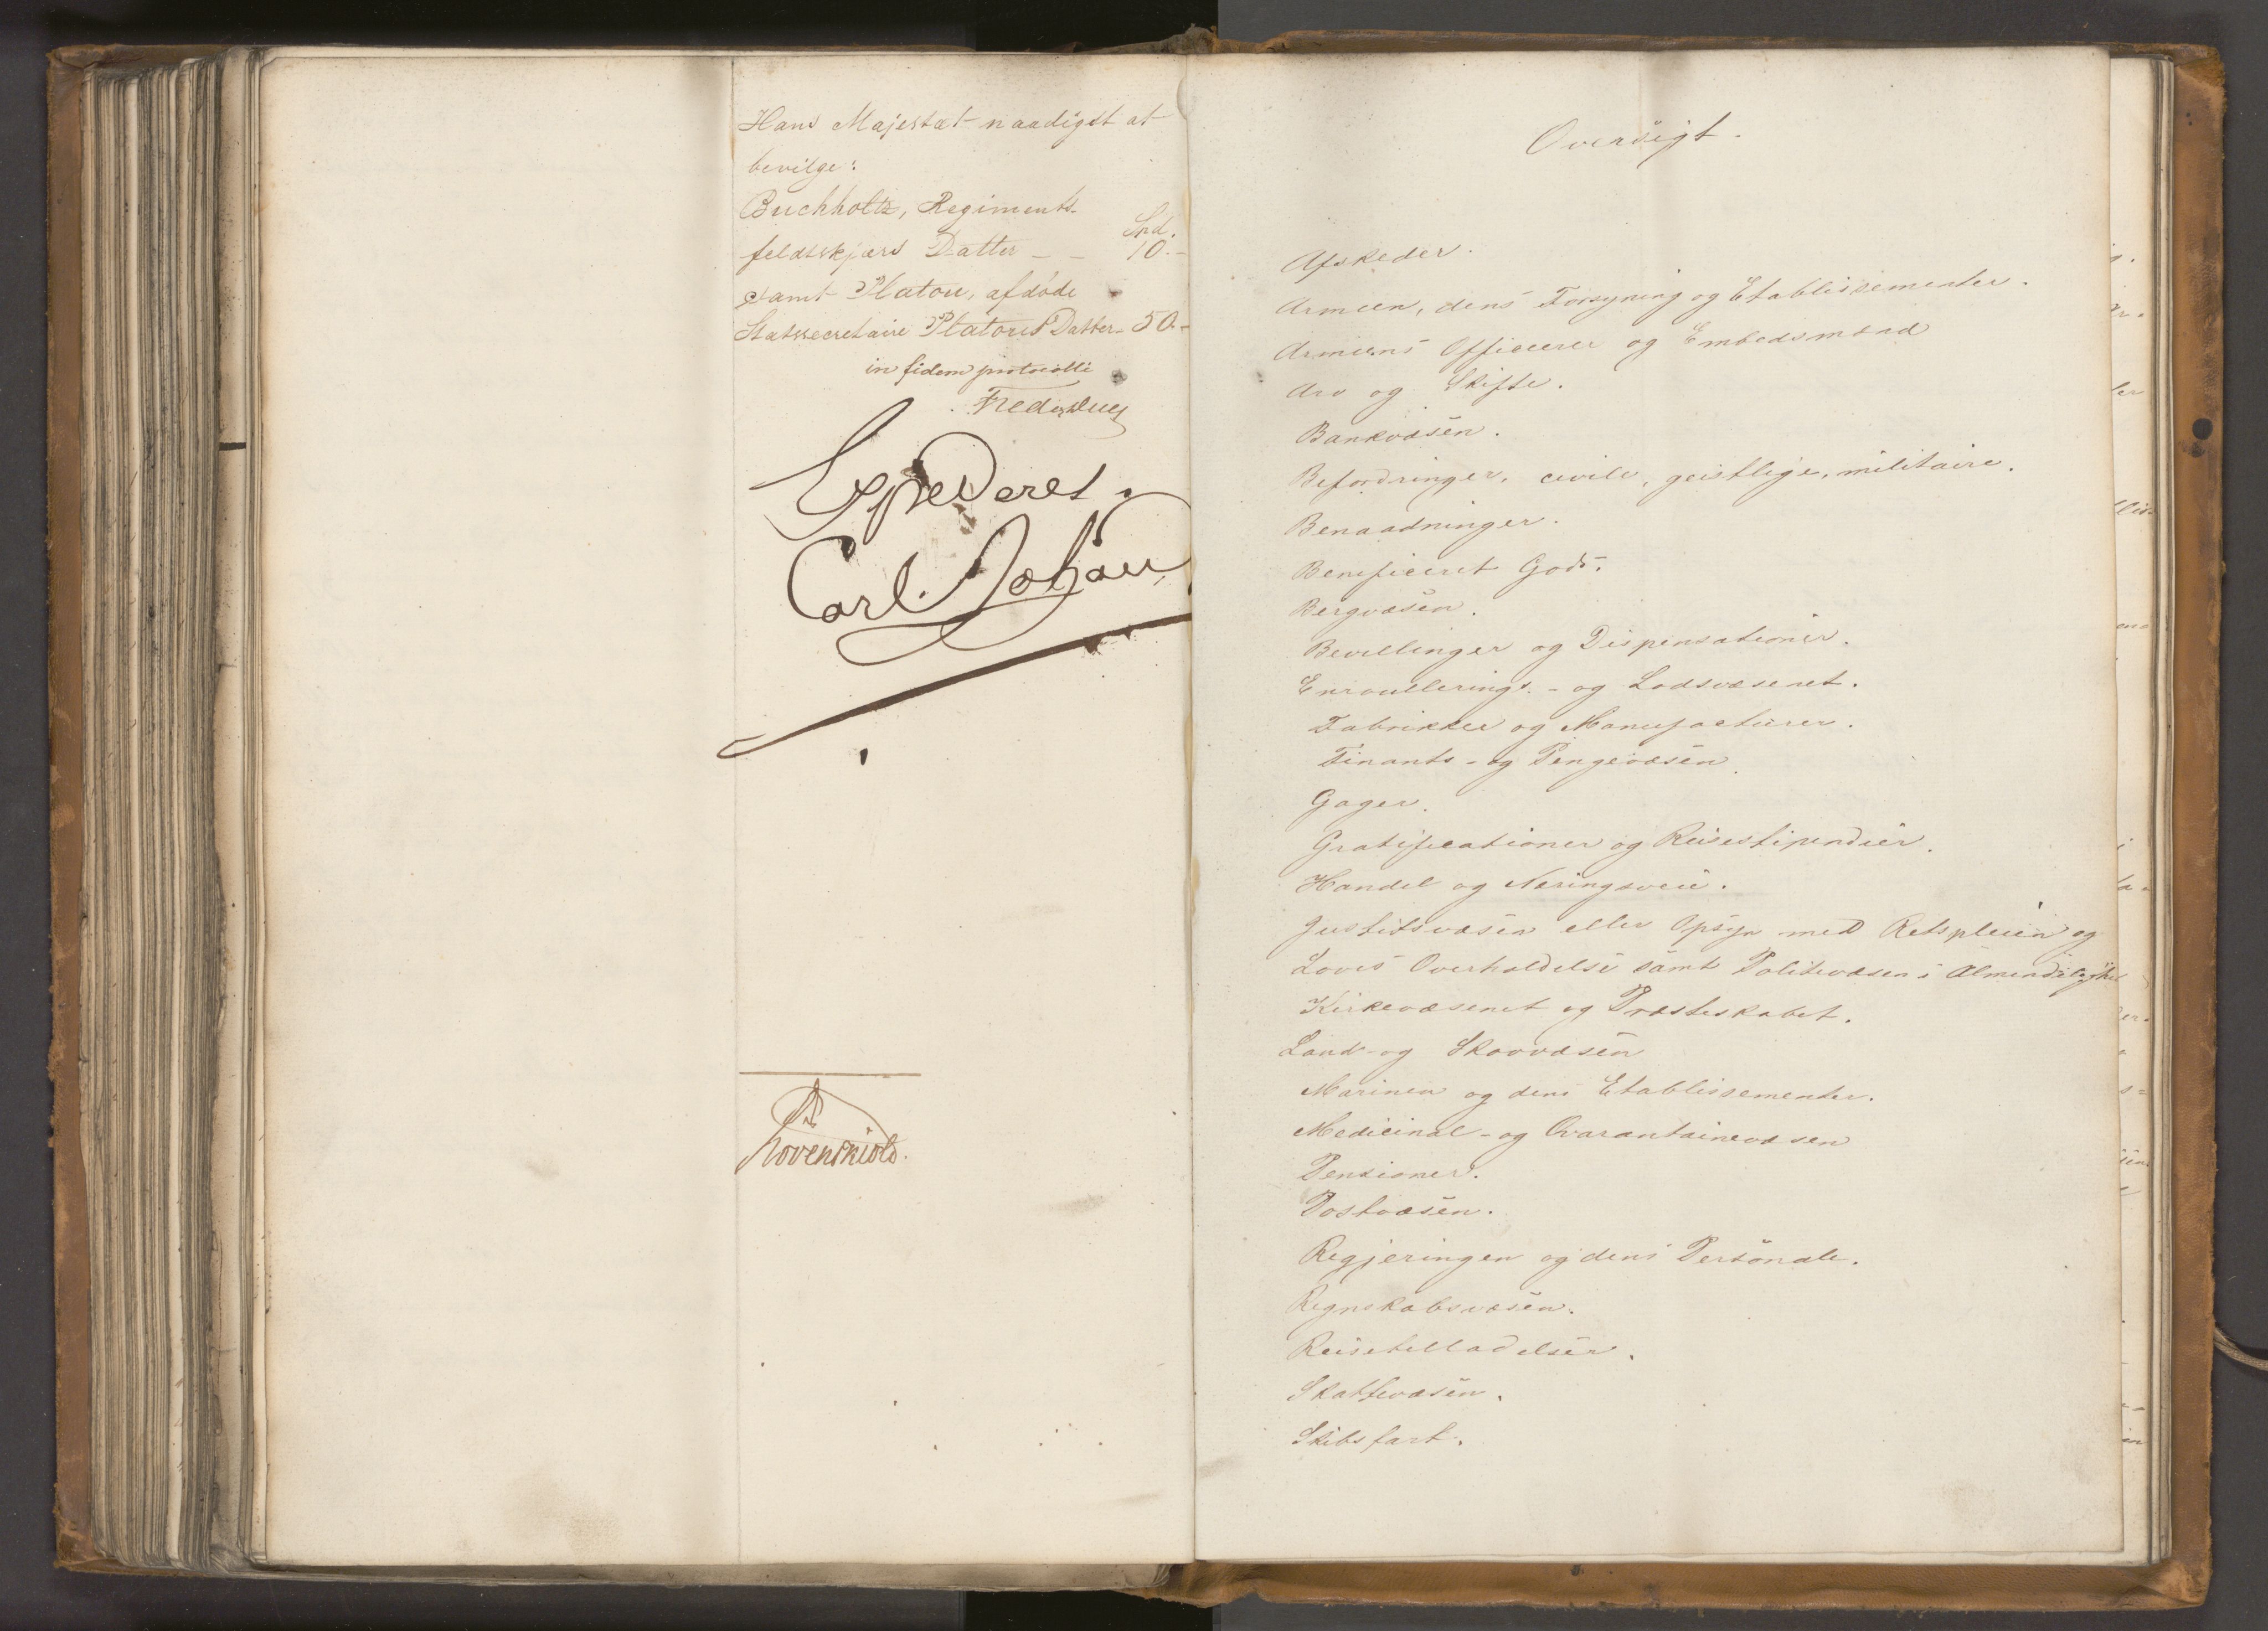 Hans Majestæt naadigst at
bevilge:
Buchholtz, Regiments-
feldtskjærs Datter - - Spd. 10.-
samt Platou, afdøde
Statssecretaire Platous Datter - 50.-
in fidem protocolli
Fred. Due
Expederes.
Carl Johan
Løvenskiold.
Oversigt.
Afskeder.
Armeen, dens Forsyning og Etablissementer.
Armeens Officerer og Embedsmænd
Arv og Skifte.
Bankvæsen.
Befordringer, civile, geistlige, militaire.
Benaadninger.
Beneficeret Gods.
Bergvæsen.
Bevillinger og Dispensationer.
Enroullerings- og Lodsvæsenet.
Fabrikker og Manufacturer.
Finants- og Pengevæsen.
Gager.
Gratificationer og Reisestipendier.
Handel og Næringsveie.
Justitsvæsen eller Opsyn med Retspleien og
Loves Overholdelse samt Politievæsen i Almindelighed
Kirkevæsenet og Præsteskabet.
Land- og Skovvæsen
Marinen og dens Etablissementer.
Medicinal- og Qvarantainevæsen
Pensioner.
Postvæsen.
Regjeringen og dens Personale.
Regnskabsvæsen.
Reisetilladelser.
Skattevæsen.
Skibsfart.